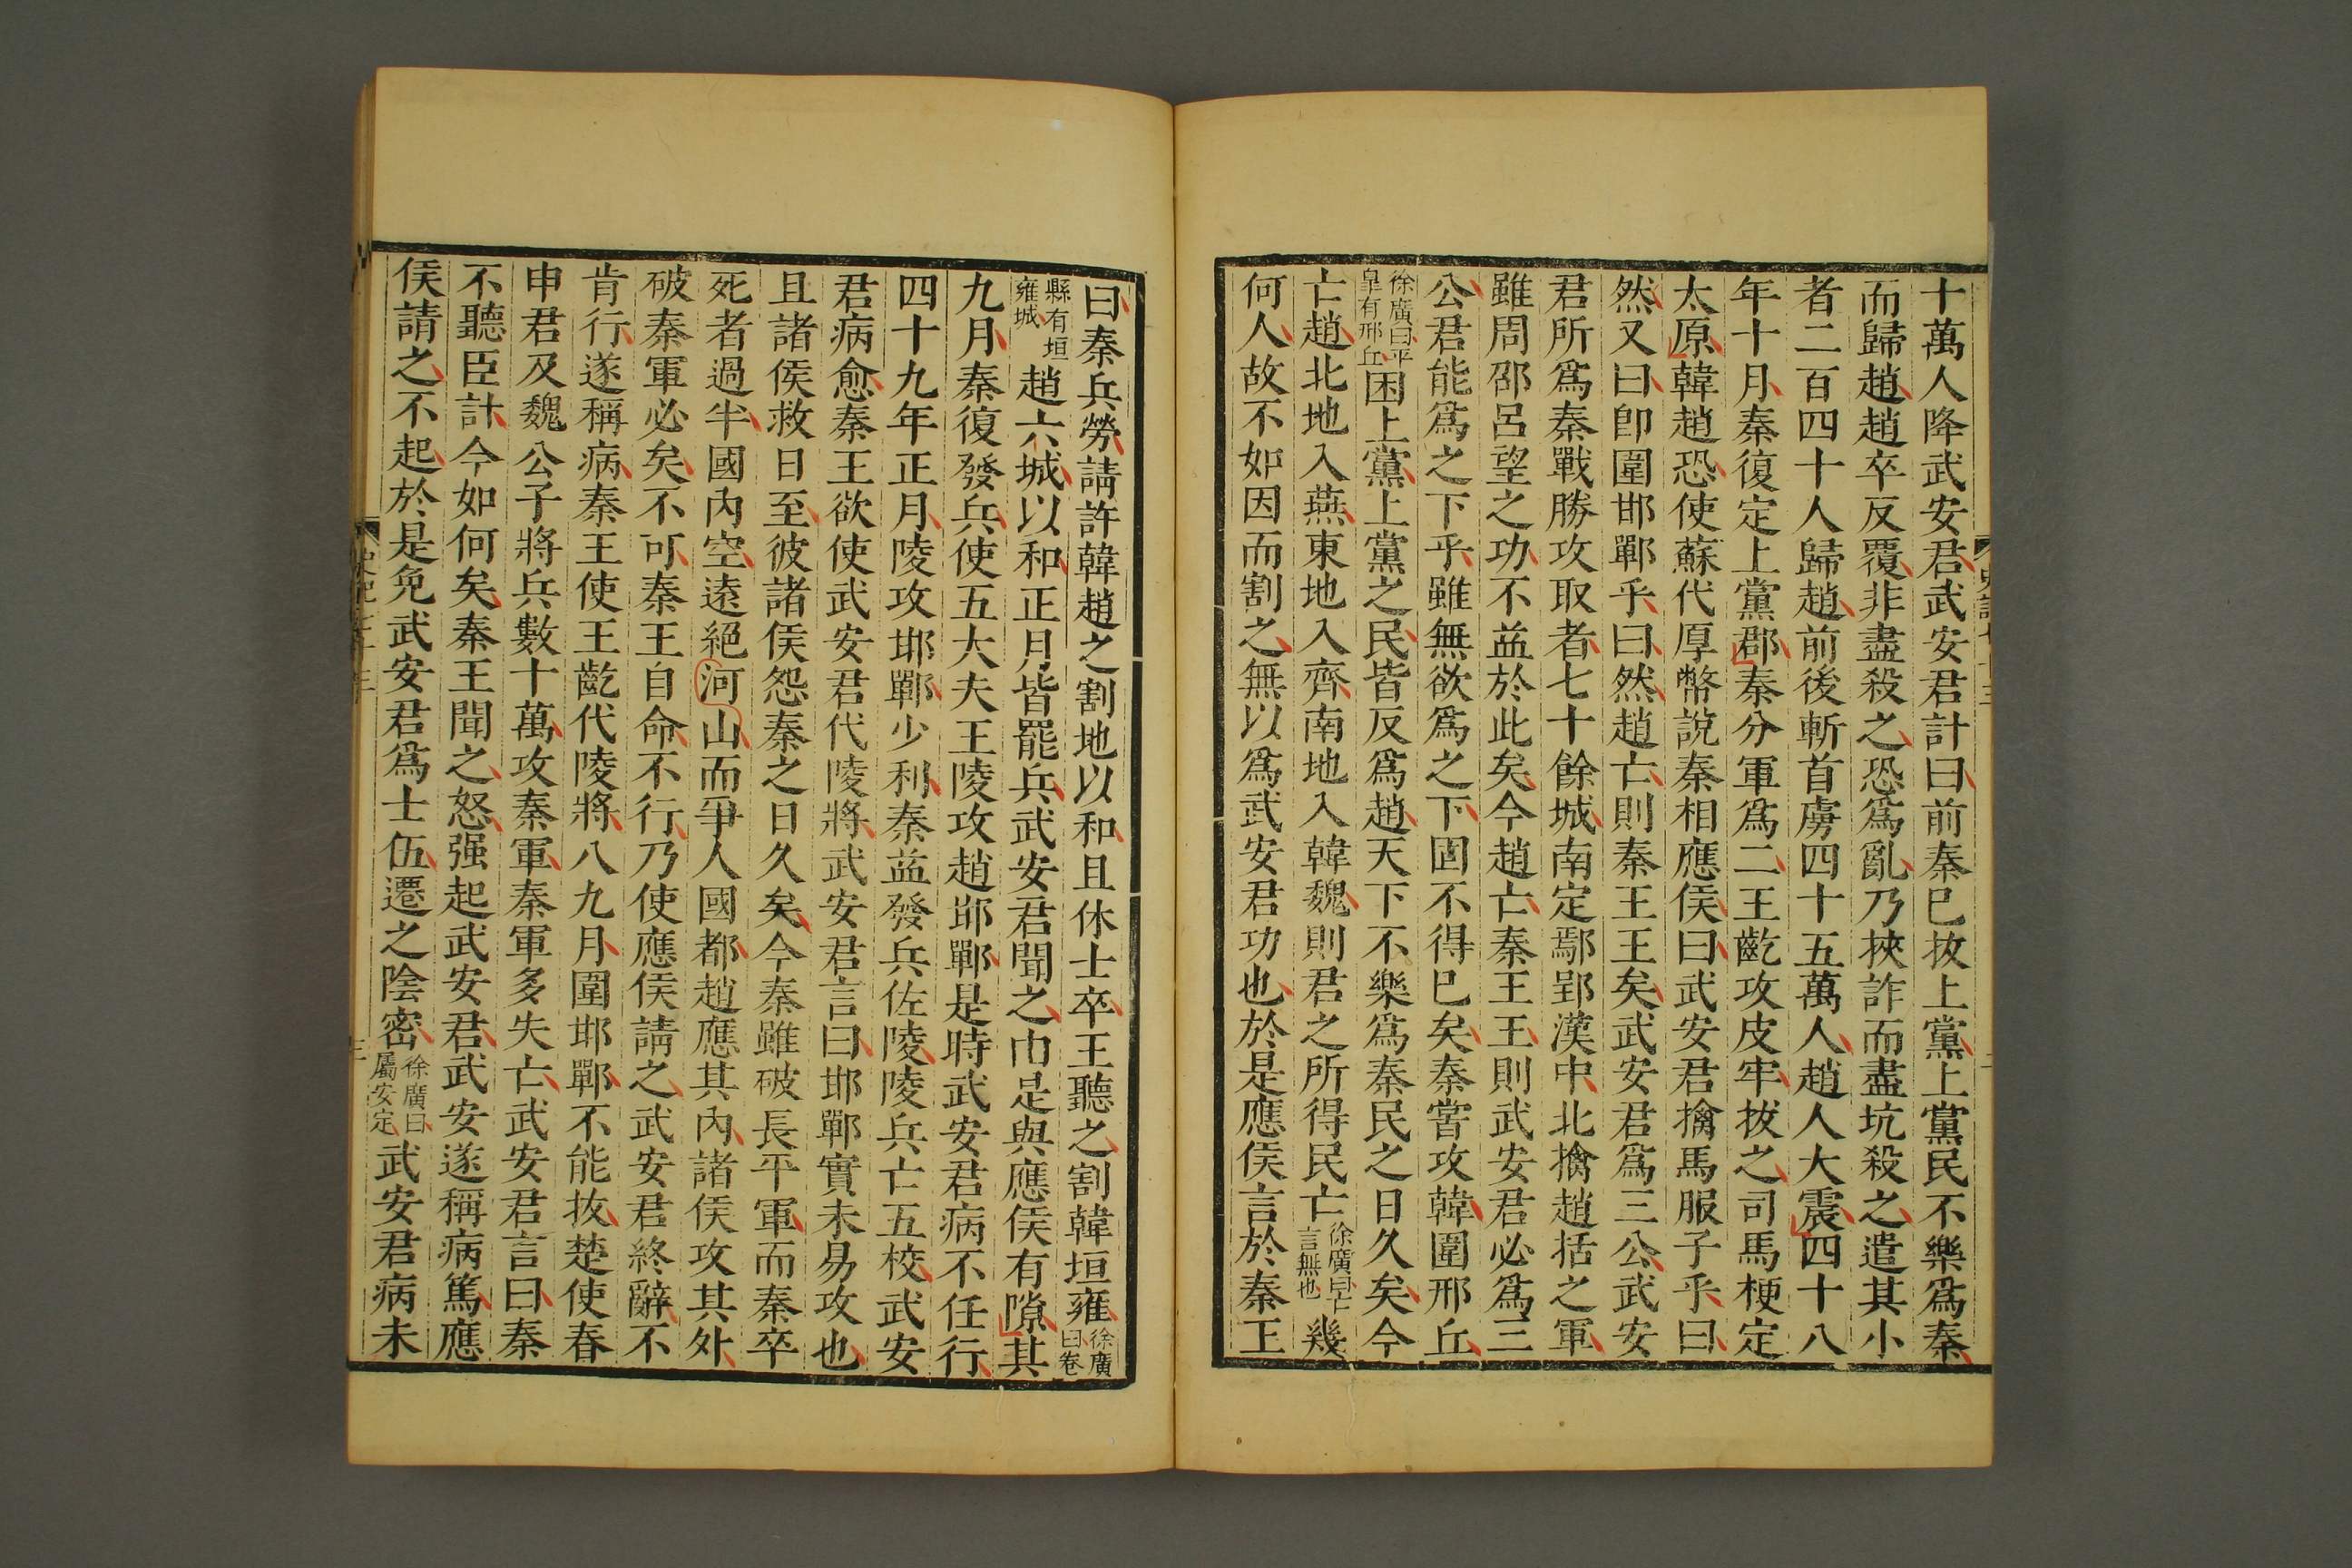 十萬人降武安君武安君計曰前秦已拔上黨上黨民不樂爲秦
而歸趙趙卒反覆非盡殺之恐爲亂乃挾詐而盡坑殺之遣其小
者二百四十人歸趙前後斬首虜四十五萬人趙人大震四十八
年十月秦復定上黨郡秦分軍爲二王齕攻皮牢拔之司馬梗定
太原韓趙恐使蘇代厚幣說秦相應侯曰武安君擒馬服子乎曰
然又曰卽圍邯鄲乎曰然趙亡則秦王王矣武安君爲三公武安
君所爲秦戰勝攻取者七十餘城南定鄢郢漢中北擒趙括之軍
雖周邵呂望之功不益於此矣今趙亡秦王王則武安君必爲三
公君能爲之下乎雖無欲爲之下固不得已矣秦嘗攻韓圍邢丘
徐廣曰平皐有邢丘困上黨上黨之民皆反爲趙天下不樂爲秦民之日久矣今
亡趙北地入燕東地入齊南地入韓魏則君之所得民亡徐廣曰亡言無也幾
何人故不如因而割之無以爲武安君功也於是應侯言於秦王
曰秦兵勞請許韓趙之割地以和且休士卒王聽之割韓垣雍徐廣曰卷
縣有垣雍城趙六城以和正月皆罷兵武安君聞之由是與應侯有隙其
九月秦復發兵使五大夫王陵攻趙邯鄲是時武安君病不任行
四十九年正月陵攻邯鄲少利秦益發兵佐陵陵兵亡五校武安
君病愈秦王欲使武安君代陵將武安君言曰邯鄲實未易攻也
且諸侯救日至彼諸侯怨秦之日久矣今秦雖破長平軍而秦卒
死者過半國內空遠絕河山而爭人國都趙應其內諸侯攻其外
破秦軍必矣不可秦王自命不行乃使應侯請之武安君終辭不
肯行遂稱病秦王使王齕代陵將八九月圍邯鄲不能拔楚使春
申君及魏公子將兵數十萬攻秦軍秦軍多失亡武安君言曰秦
不聽臣計今如何矣秦王聞之怒强起武安君武安遂稱病篤應
侯請之不起於是免武安君爲士伍遷之陰密徐廣曰屬安定武安君病未